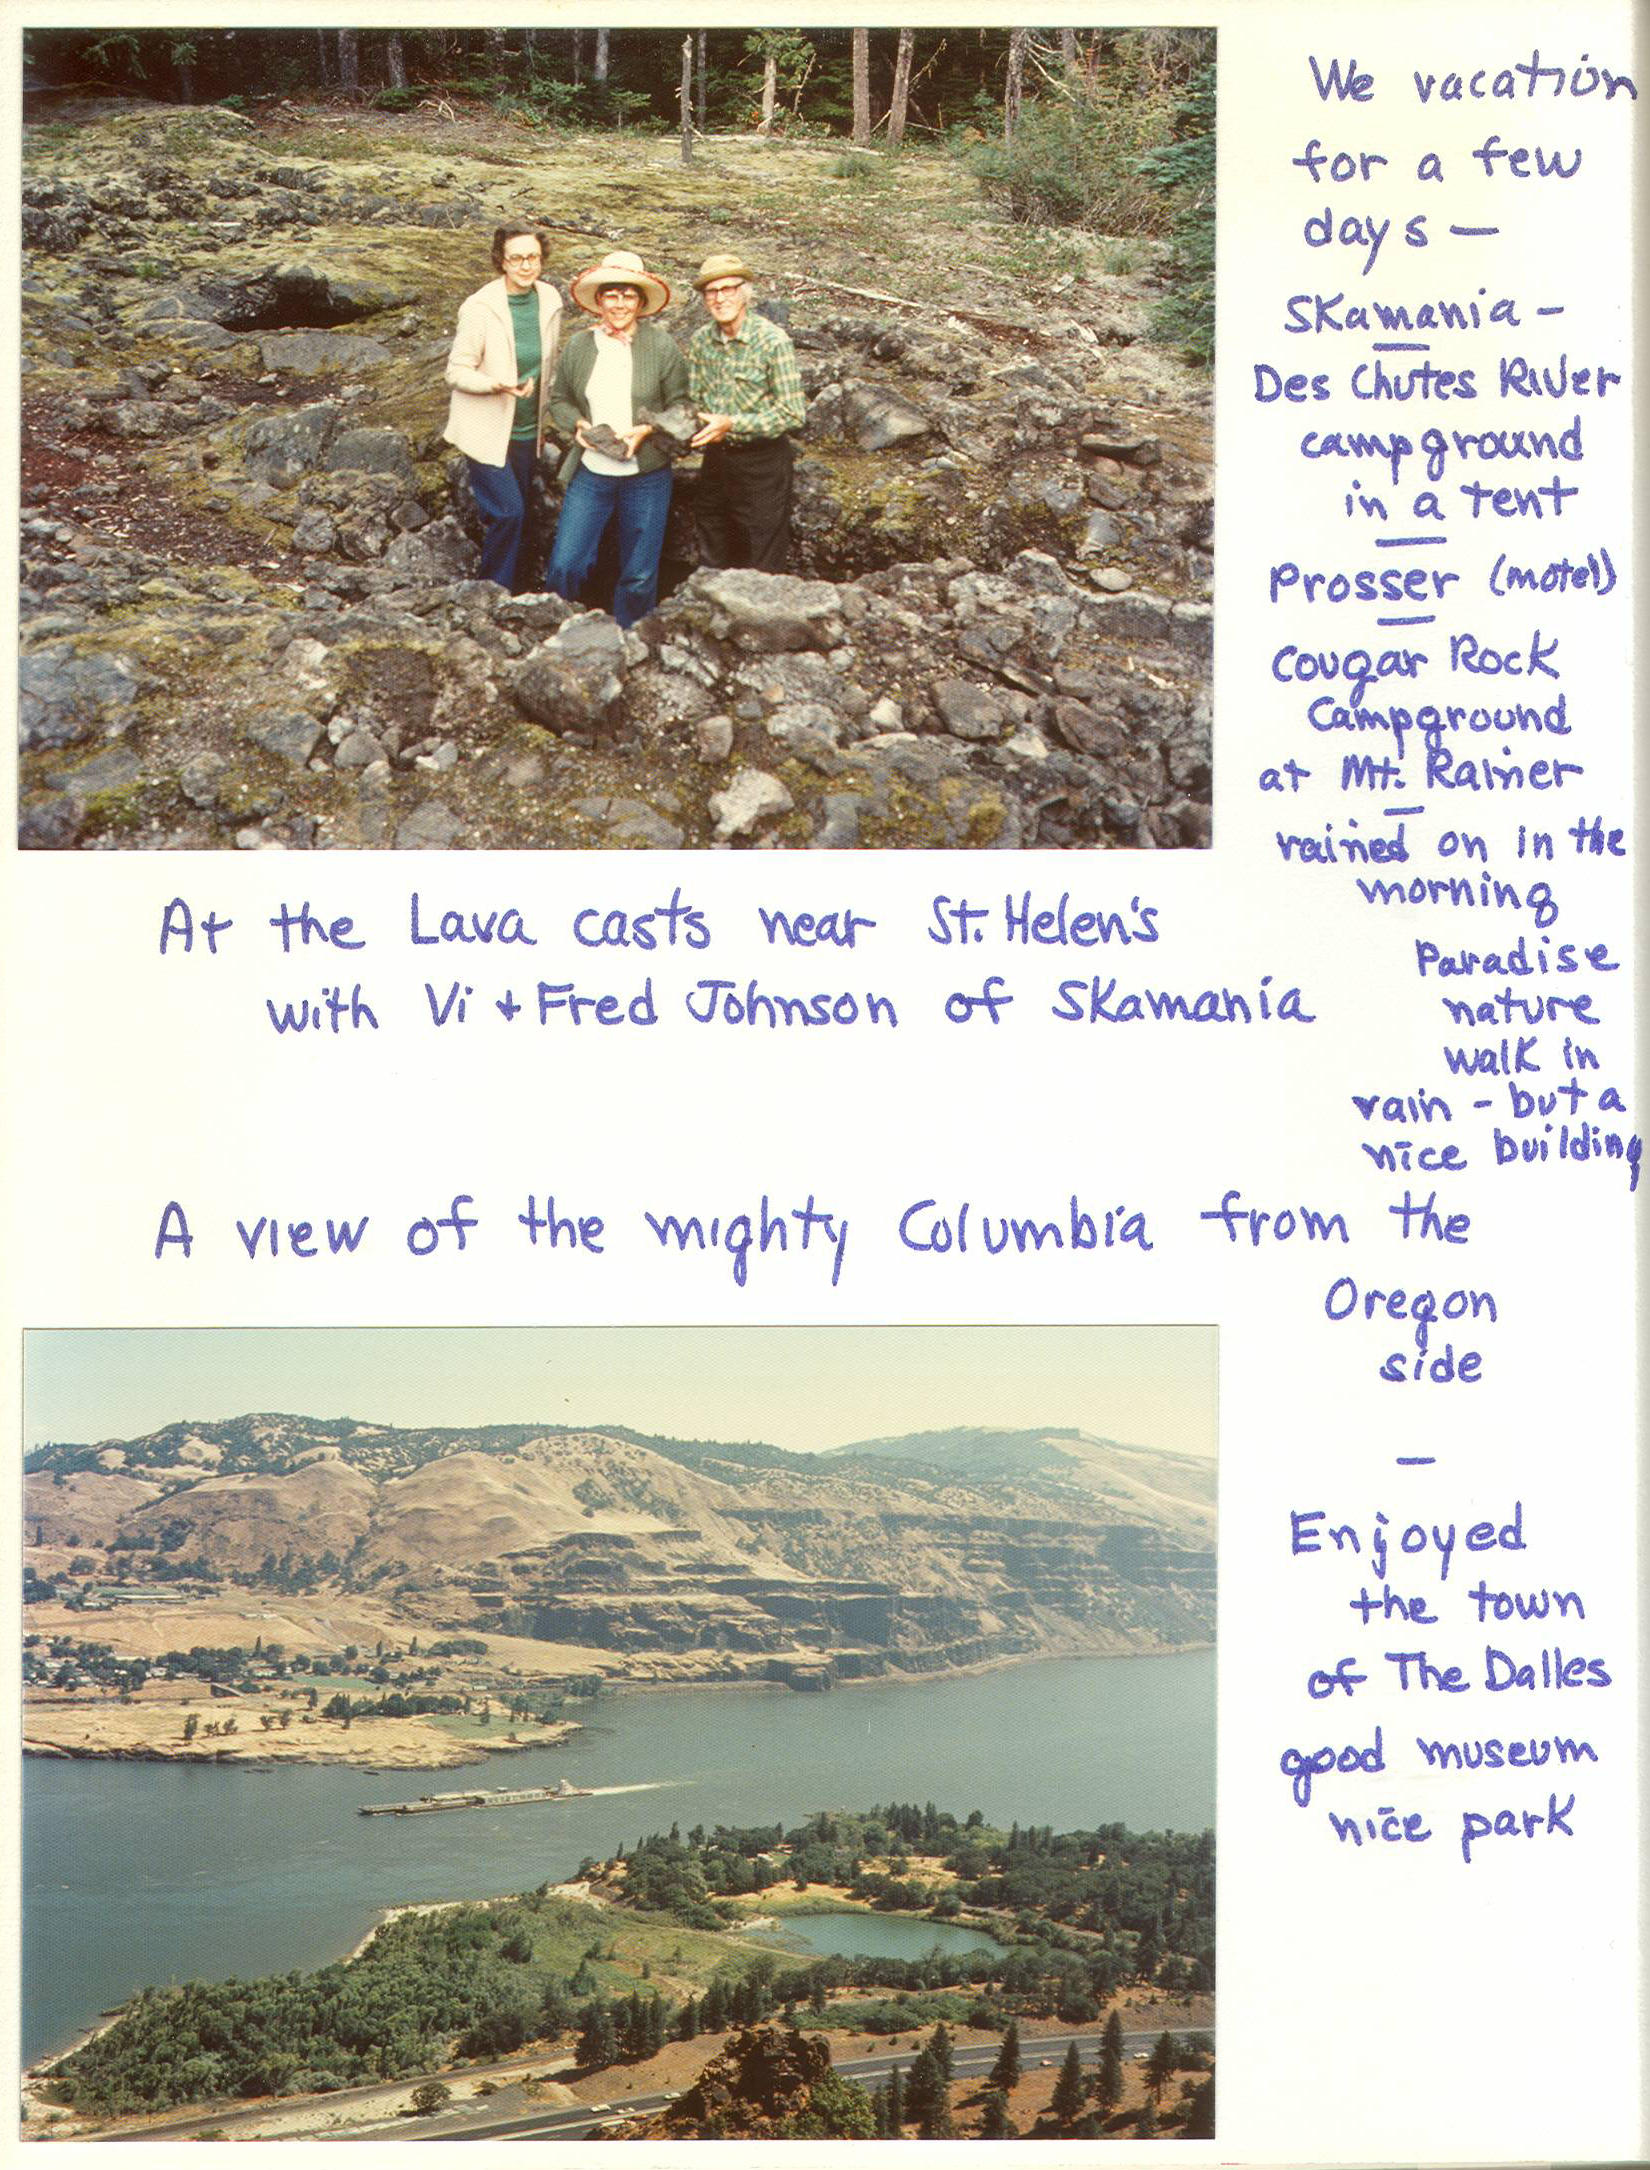 We vacation
for a few
days —
Skamania -
Des Chutes River
campground
in a tent
Prosser (motel)
Cougar Rock
Campground
at Mt. Rainier
rained on in the
morning
Paradise
nature
walk in
rain - but a
nice building
At the Lava casts near St. Helen's
with Vi + Fred Johnson of Skamania
A view of the mighty Columbia from the
Oregon
side
—
Enjoyed
the town
of The Dalles
good museum
nice park